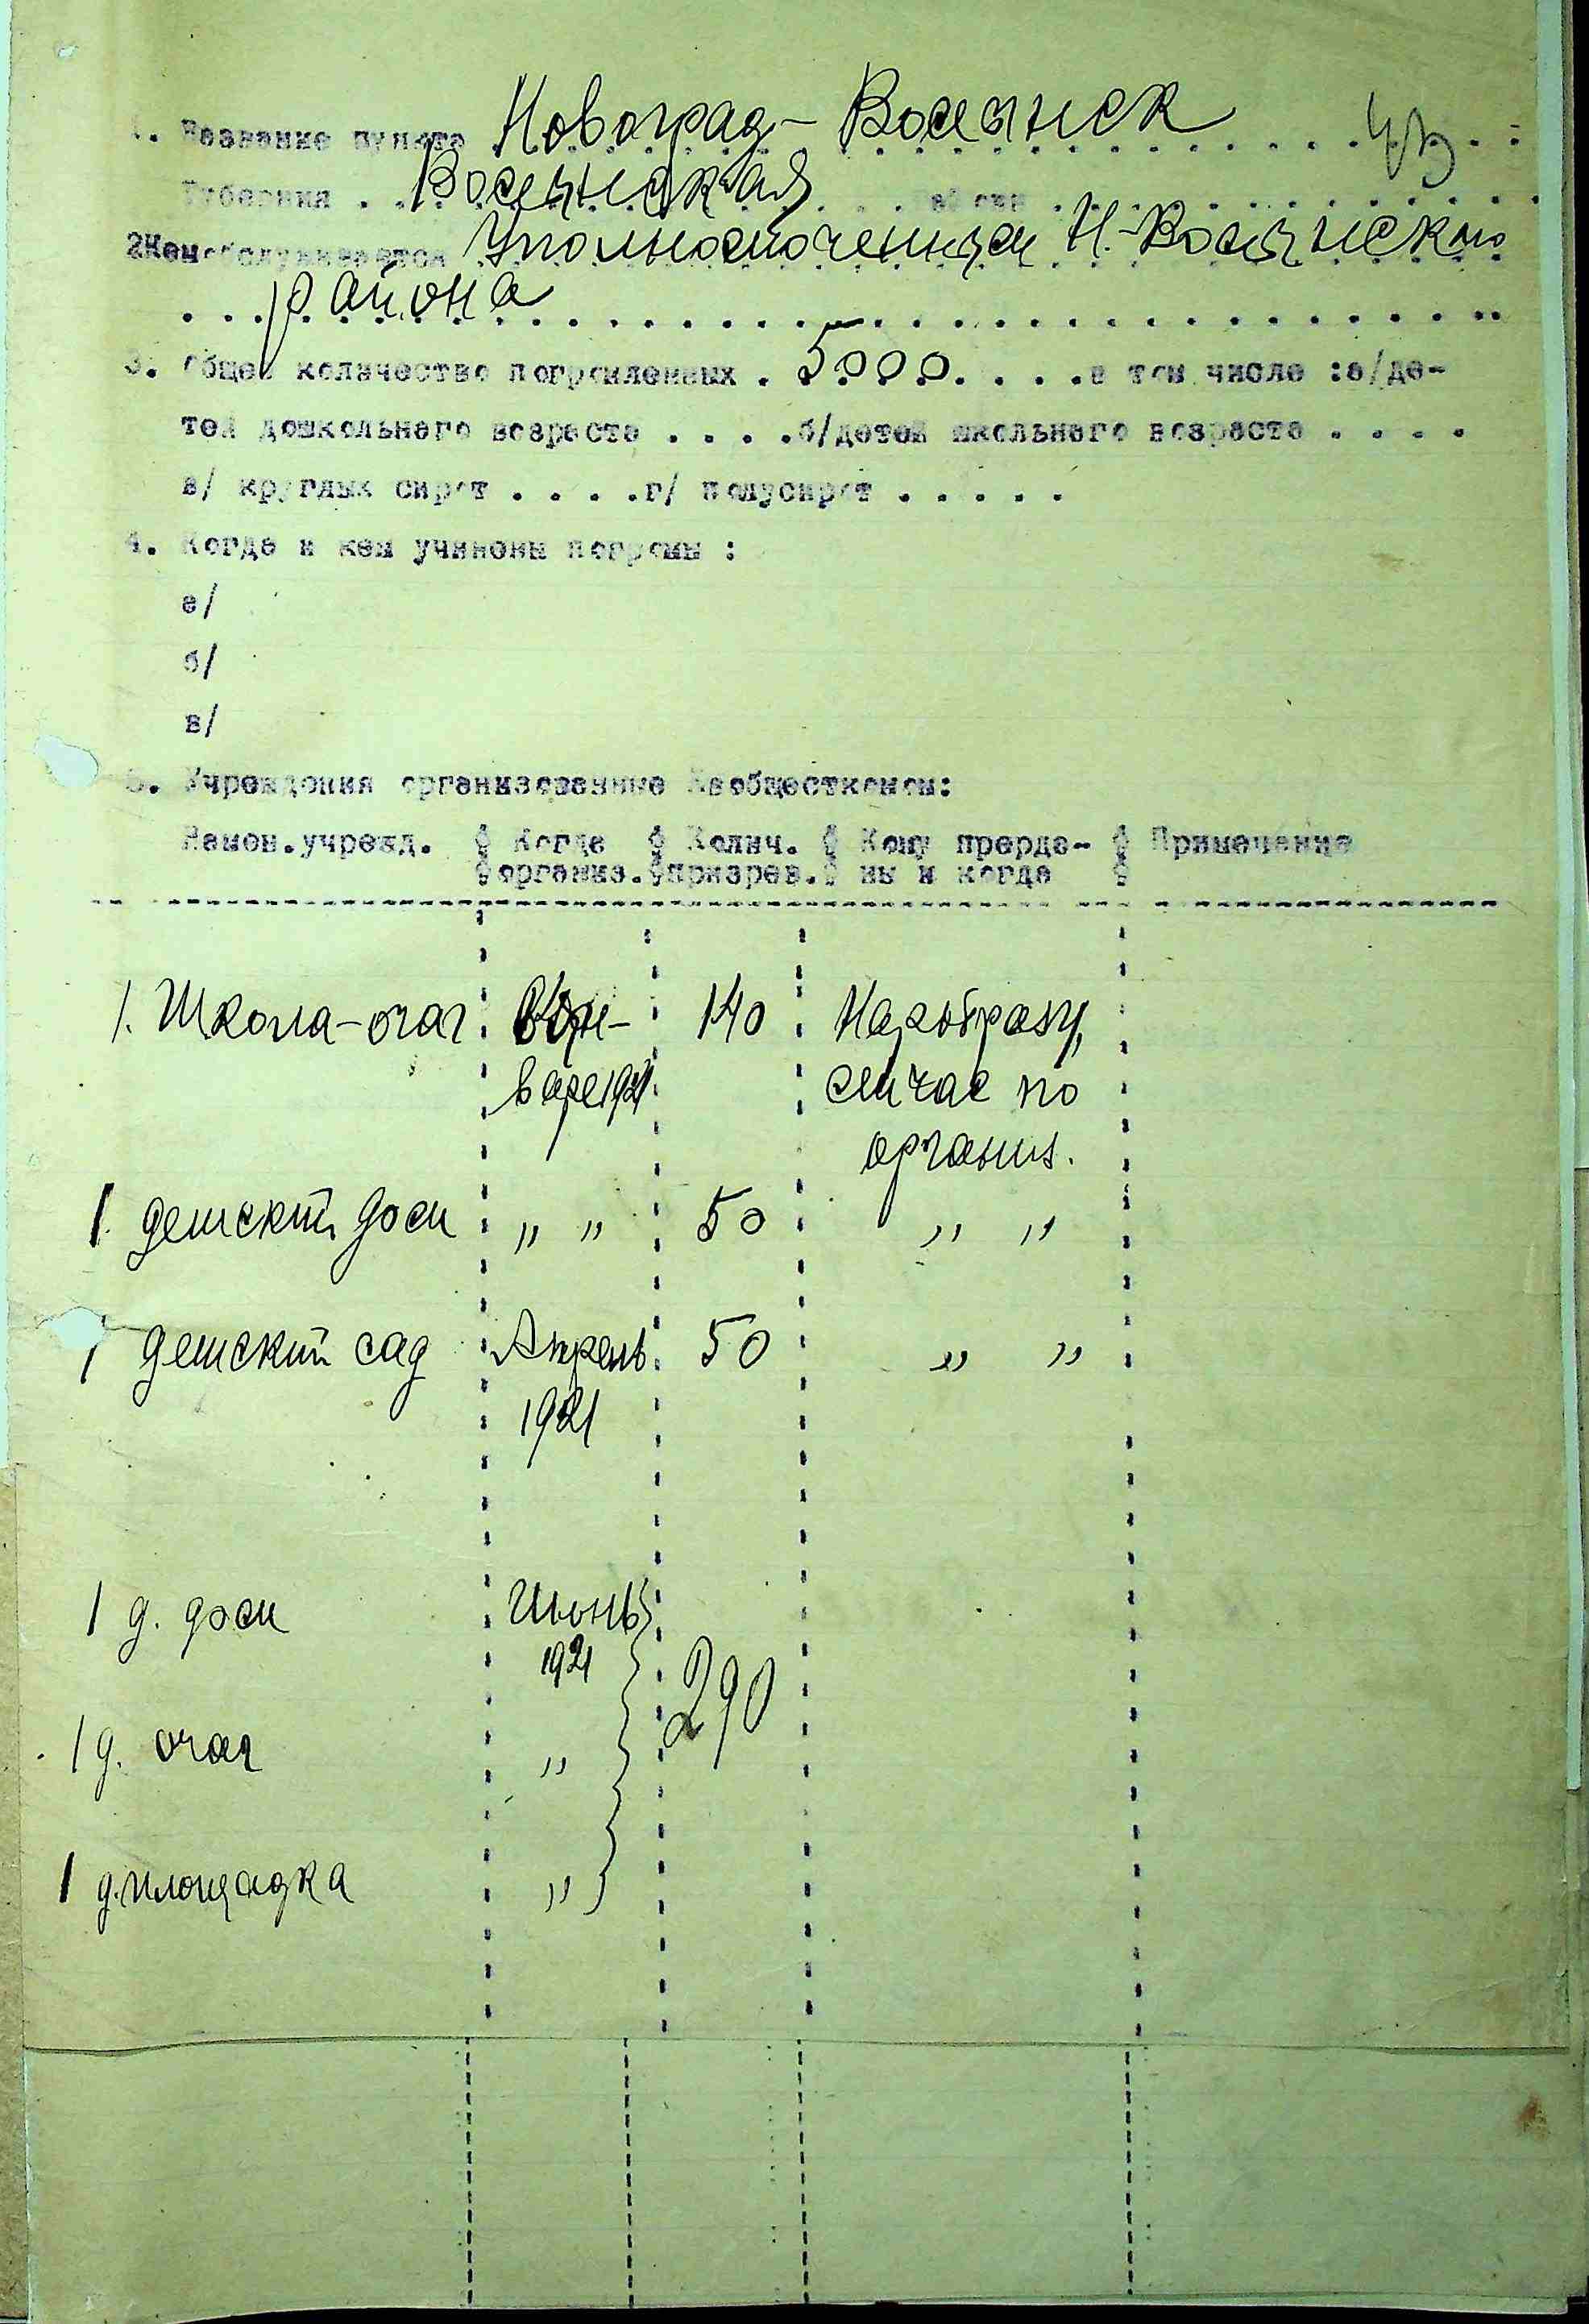 1. Название пункта Новоград-Волынск
Губерния . . Волынская . . . .
2 Кем обслуживается Уполномоченным Н.-Волынского
. . . района . . . . . . . . . . . . . . . . . . . . . . . . . . .
3. Общее количество погромленных . 5000 . . . . в том числе :а/де-
тей дошкольного возраста . . . . б/детей школьного возраста . . . .
в/ круглых сирот . . . . г/ полусирот . . . . .
4. Когда и кем учинены погромы :
а/
б/
в/
5. Учреждения организованные Евобщесткомом:
Наимен.учрежд. Когда Колич. Кому переда- Примечание
организ. призрев. ны и когда
1. Школа-очаг 140 Наробразу,
1921 сейчас по
организ.
1. детский дом " " 50 " "
1 детский сад Апрель 50 " "
1921
1 д. дом Июнь
1921 290
1 д. очаг "
1 д. площадка "